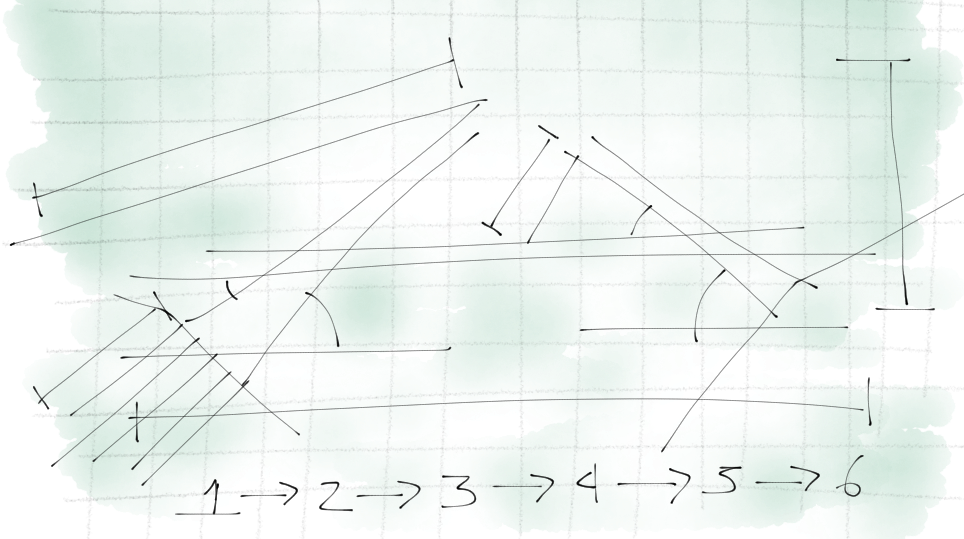 1 → 2 → 3 → 4 → 5 → 6